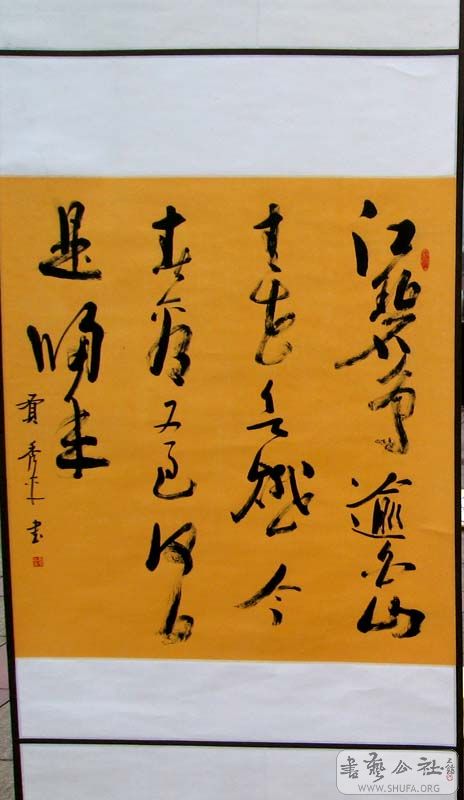 江碧鳥逾白山
青花欲燃今
春看又過何日
是歸年
書
書藝公社
WWW.SHUFA.ORG